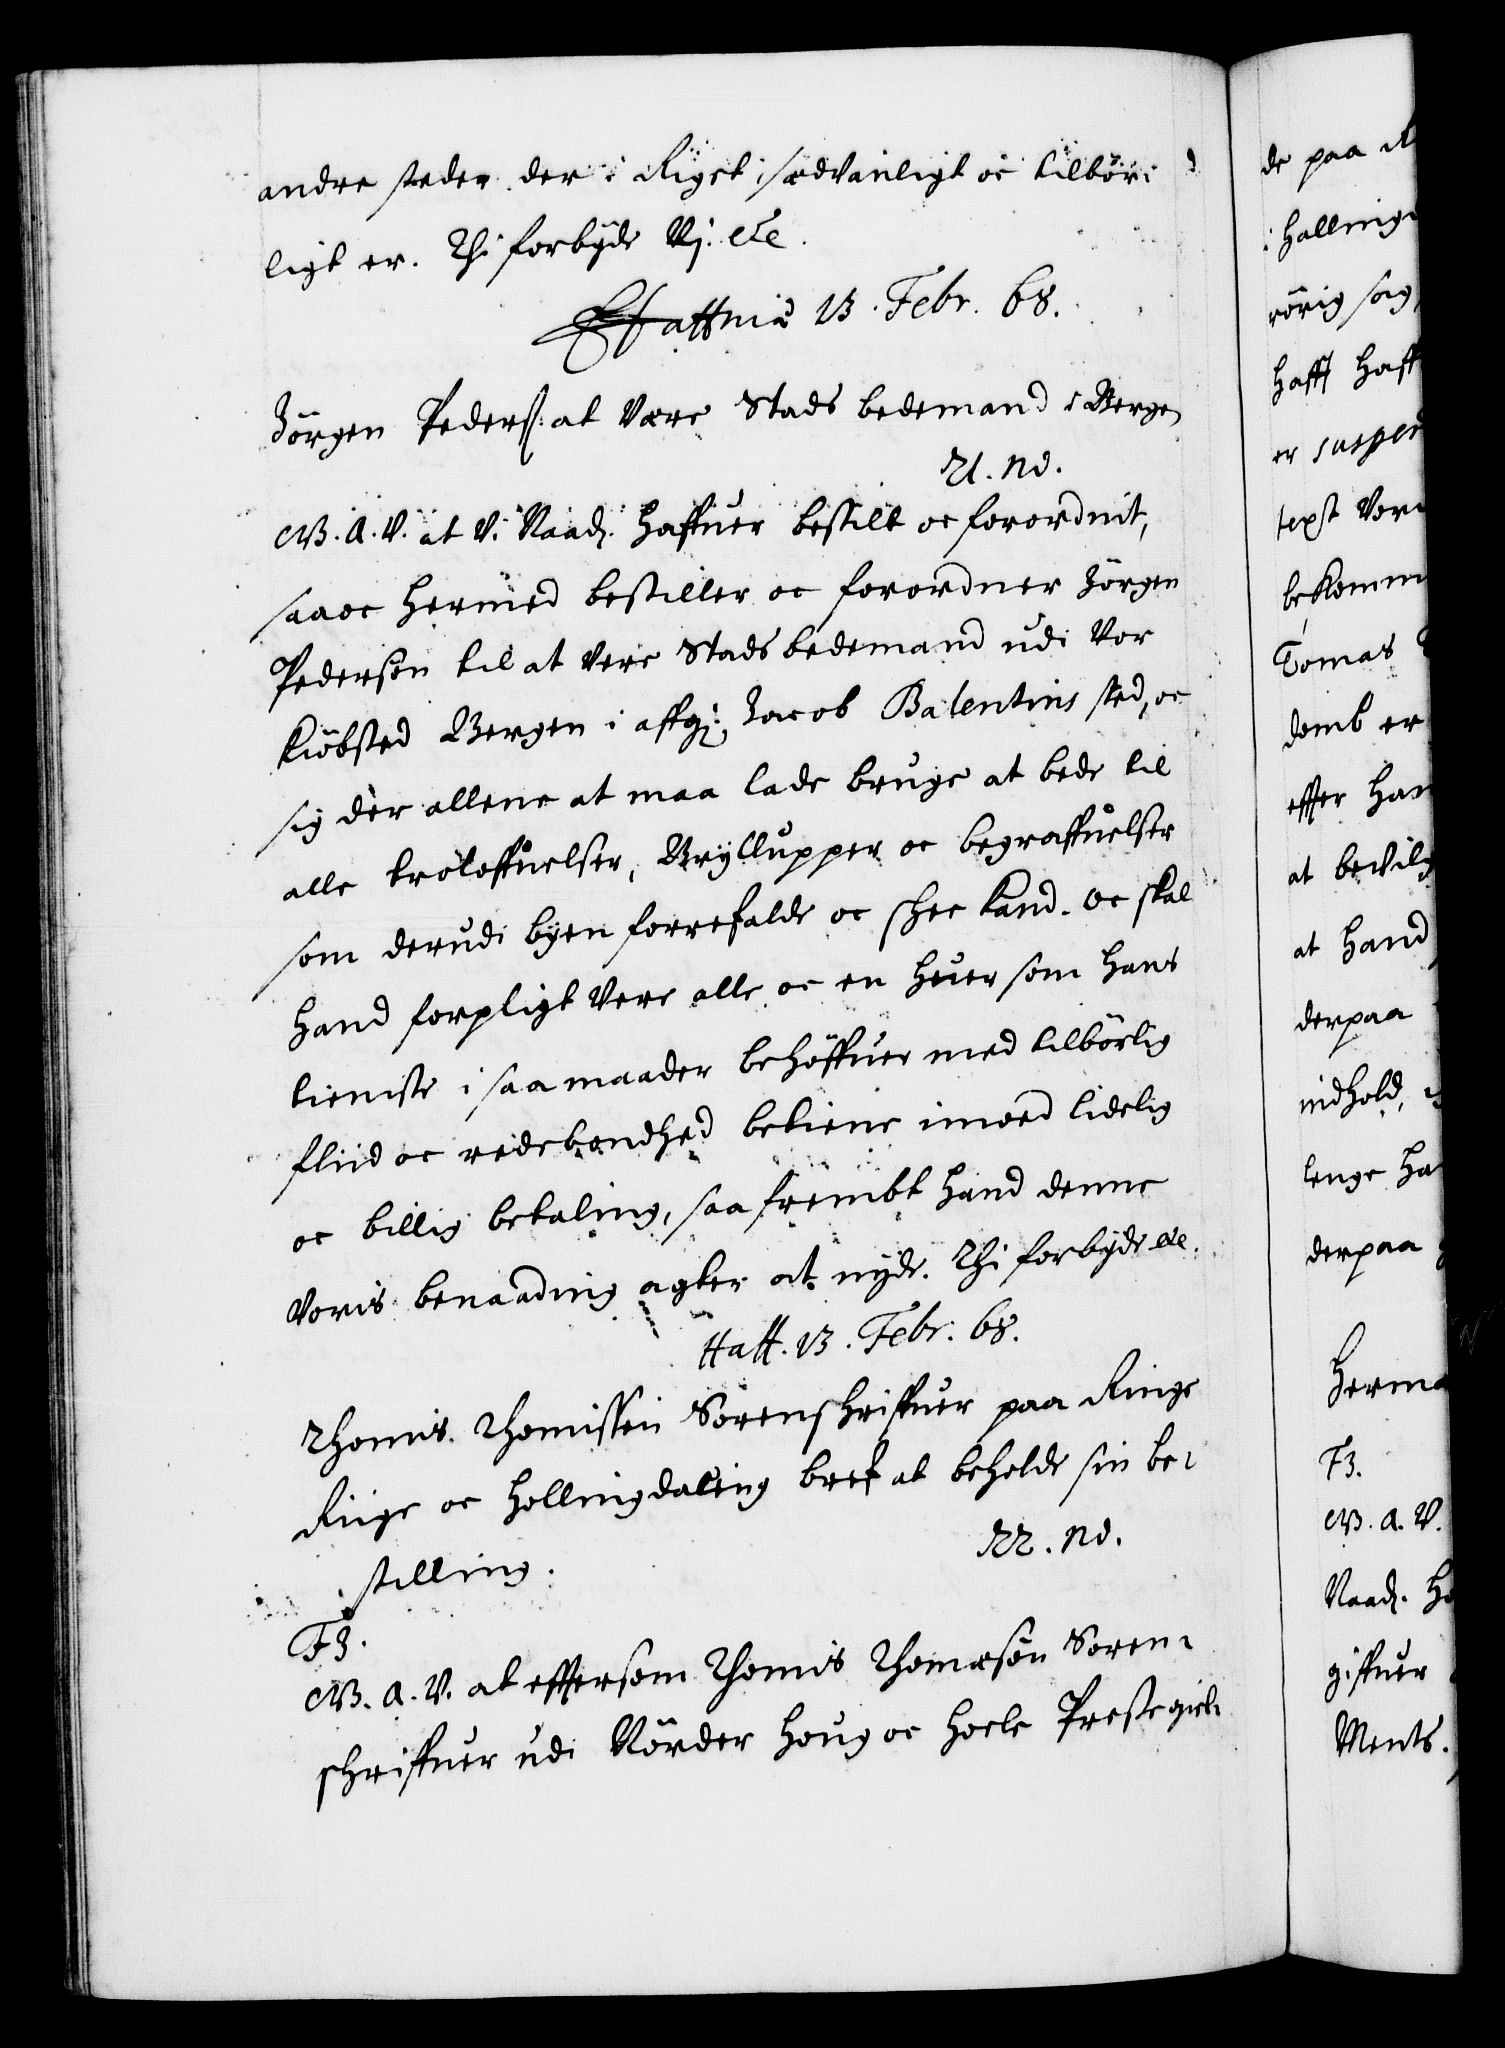 andre steder der i Riget sædvanligt oc tilbør-
ligt er. Thi forbyde Vj. etc.
Haffniæ 13. Febr. 68.
Jörgen Peders: at være Stads bedemand i Bergen
21. nd.
G.A.V. at V. Naad. haffuer bestilt oc forordnit,
saa oc hermed bestiller oc forordner Jörgen
Pedersøn til at vere Stads bedemand udi Vor
kiöbsted Bergen i affg: Jacob Balentins sted, oc
sig dèr allene at maa lade bruge at bede til
alle troloffuelser, Bryllupper oc begraffuelser
som derudi byen forrefalde oc skee kand. Oc skal
hand forpligt vere alle oc en huer som hans
tieniste i saa maader behöffuer med tilbörlig
fliid oc redebondhed betiene imod lidelig
oc billig betaling, saa frembt hand denne
Voris benaading agter at nyde. Thi forbyde etc.
Haff. 13. Febr. 68.
Thomis Thomissen Sorenschriffuer paa Ringe
Ringe oc Hollingdaling bref at beholde sin be-
stilling.
22. nd.
F3.
G.A.V. at efftersom Thomis Thomæsøn Soren-
schriffuer udi Nörder Houg oc Hoele Prestegield
de paa
i Halling
rörig sag,
hafft haff
er
text Vor
bekomm
Tomas
domb er
effter han
at bevilg
at hand
derpaa
indhold,
lenge ha
derpaa
Herma
F3.
G.A.V.
Naad. ha
giffuer
Ments.